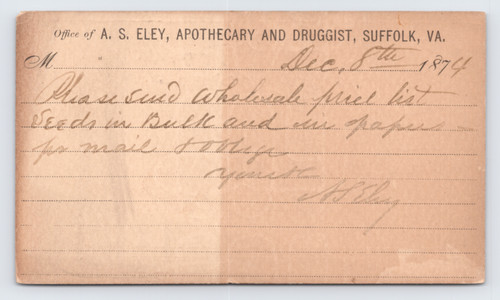 Office of A. S. ELEY, APOTHECARY AND DRUGGIST, SUFFOLK, VA.
M Dec. 8th 1874
Please send wholesale price list
Seeds in Bulk and in papers
pr mail & oblige
Yours &c
A S Eley